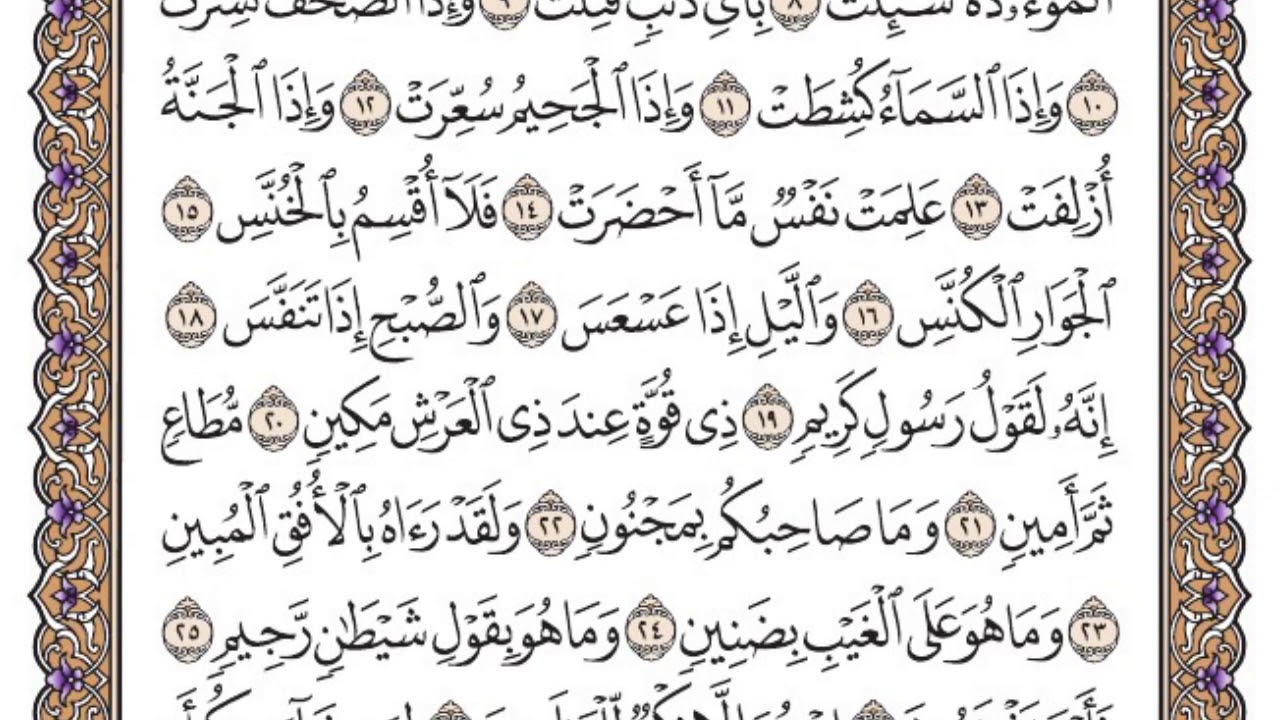 ٱلْمَوْءُۥدَةُ سُئِلَتْ ٨ بِأَىِّ ذَنۢبٍ قُتِلَتْ ٩ وَإِذَا ٱلصُّحُفُ نُشِرَتْ
١٠ وَإِذَا ٱلسَّمَآءُ كُشِطَتْ ١١ وَإِذَا ٱلْجَحِيمُ سُعِّرَتْ ١٢ وَإِذَا ٱلْجَنَّةُ
أُزْلِفَتْ ١٣ عَلِمَتْ نَفْسٌ مَّآ أَحْضَرَتْ ١٤ فَلَآ أُقْسِمُ بِٱلْخُنَّسِ ١٥
ٱلْجَوَارِ ٱلْكُنَّسِ ١٦ وَٱلَّيْلِ إِذَا عَسْعَسَ ١٧ وَٱلصُّبْحِ إِذَا تَنَفَّسَ ١٨
إِنَّهُۥ لَقَوْلُ رَسُولٍ كَرِيمٍ ١٩ ذِى قُوَّةٍ عِندَ ذِى ٱلْعَرْشِ مَكِينٍ ٢٠ مُّطَاعٍ
ثَمَّ أَمِينٍ ٢١ وَمَا صَاحِبُكُم بِمَجْنُونٍ ٢٢ وَلَقَدْ رَءَاهُ بِٱلْأُفُقِ ٱلْمُبِينِ
٢٣ وَمَا هُوَ عَلَى ٱلْغَيْبِ بِضَنِينٍ ٢٤ وَمَا هُوَ بِقَوْلِ شَيْطَٰنٍ رَّجِيمٍ ٢٥